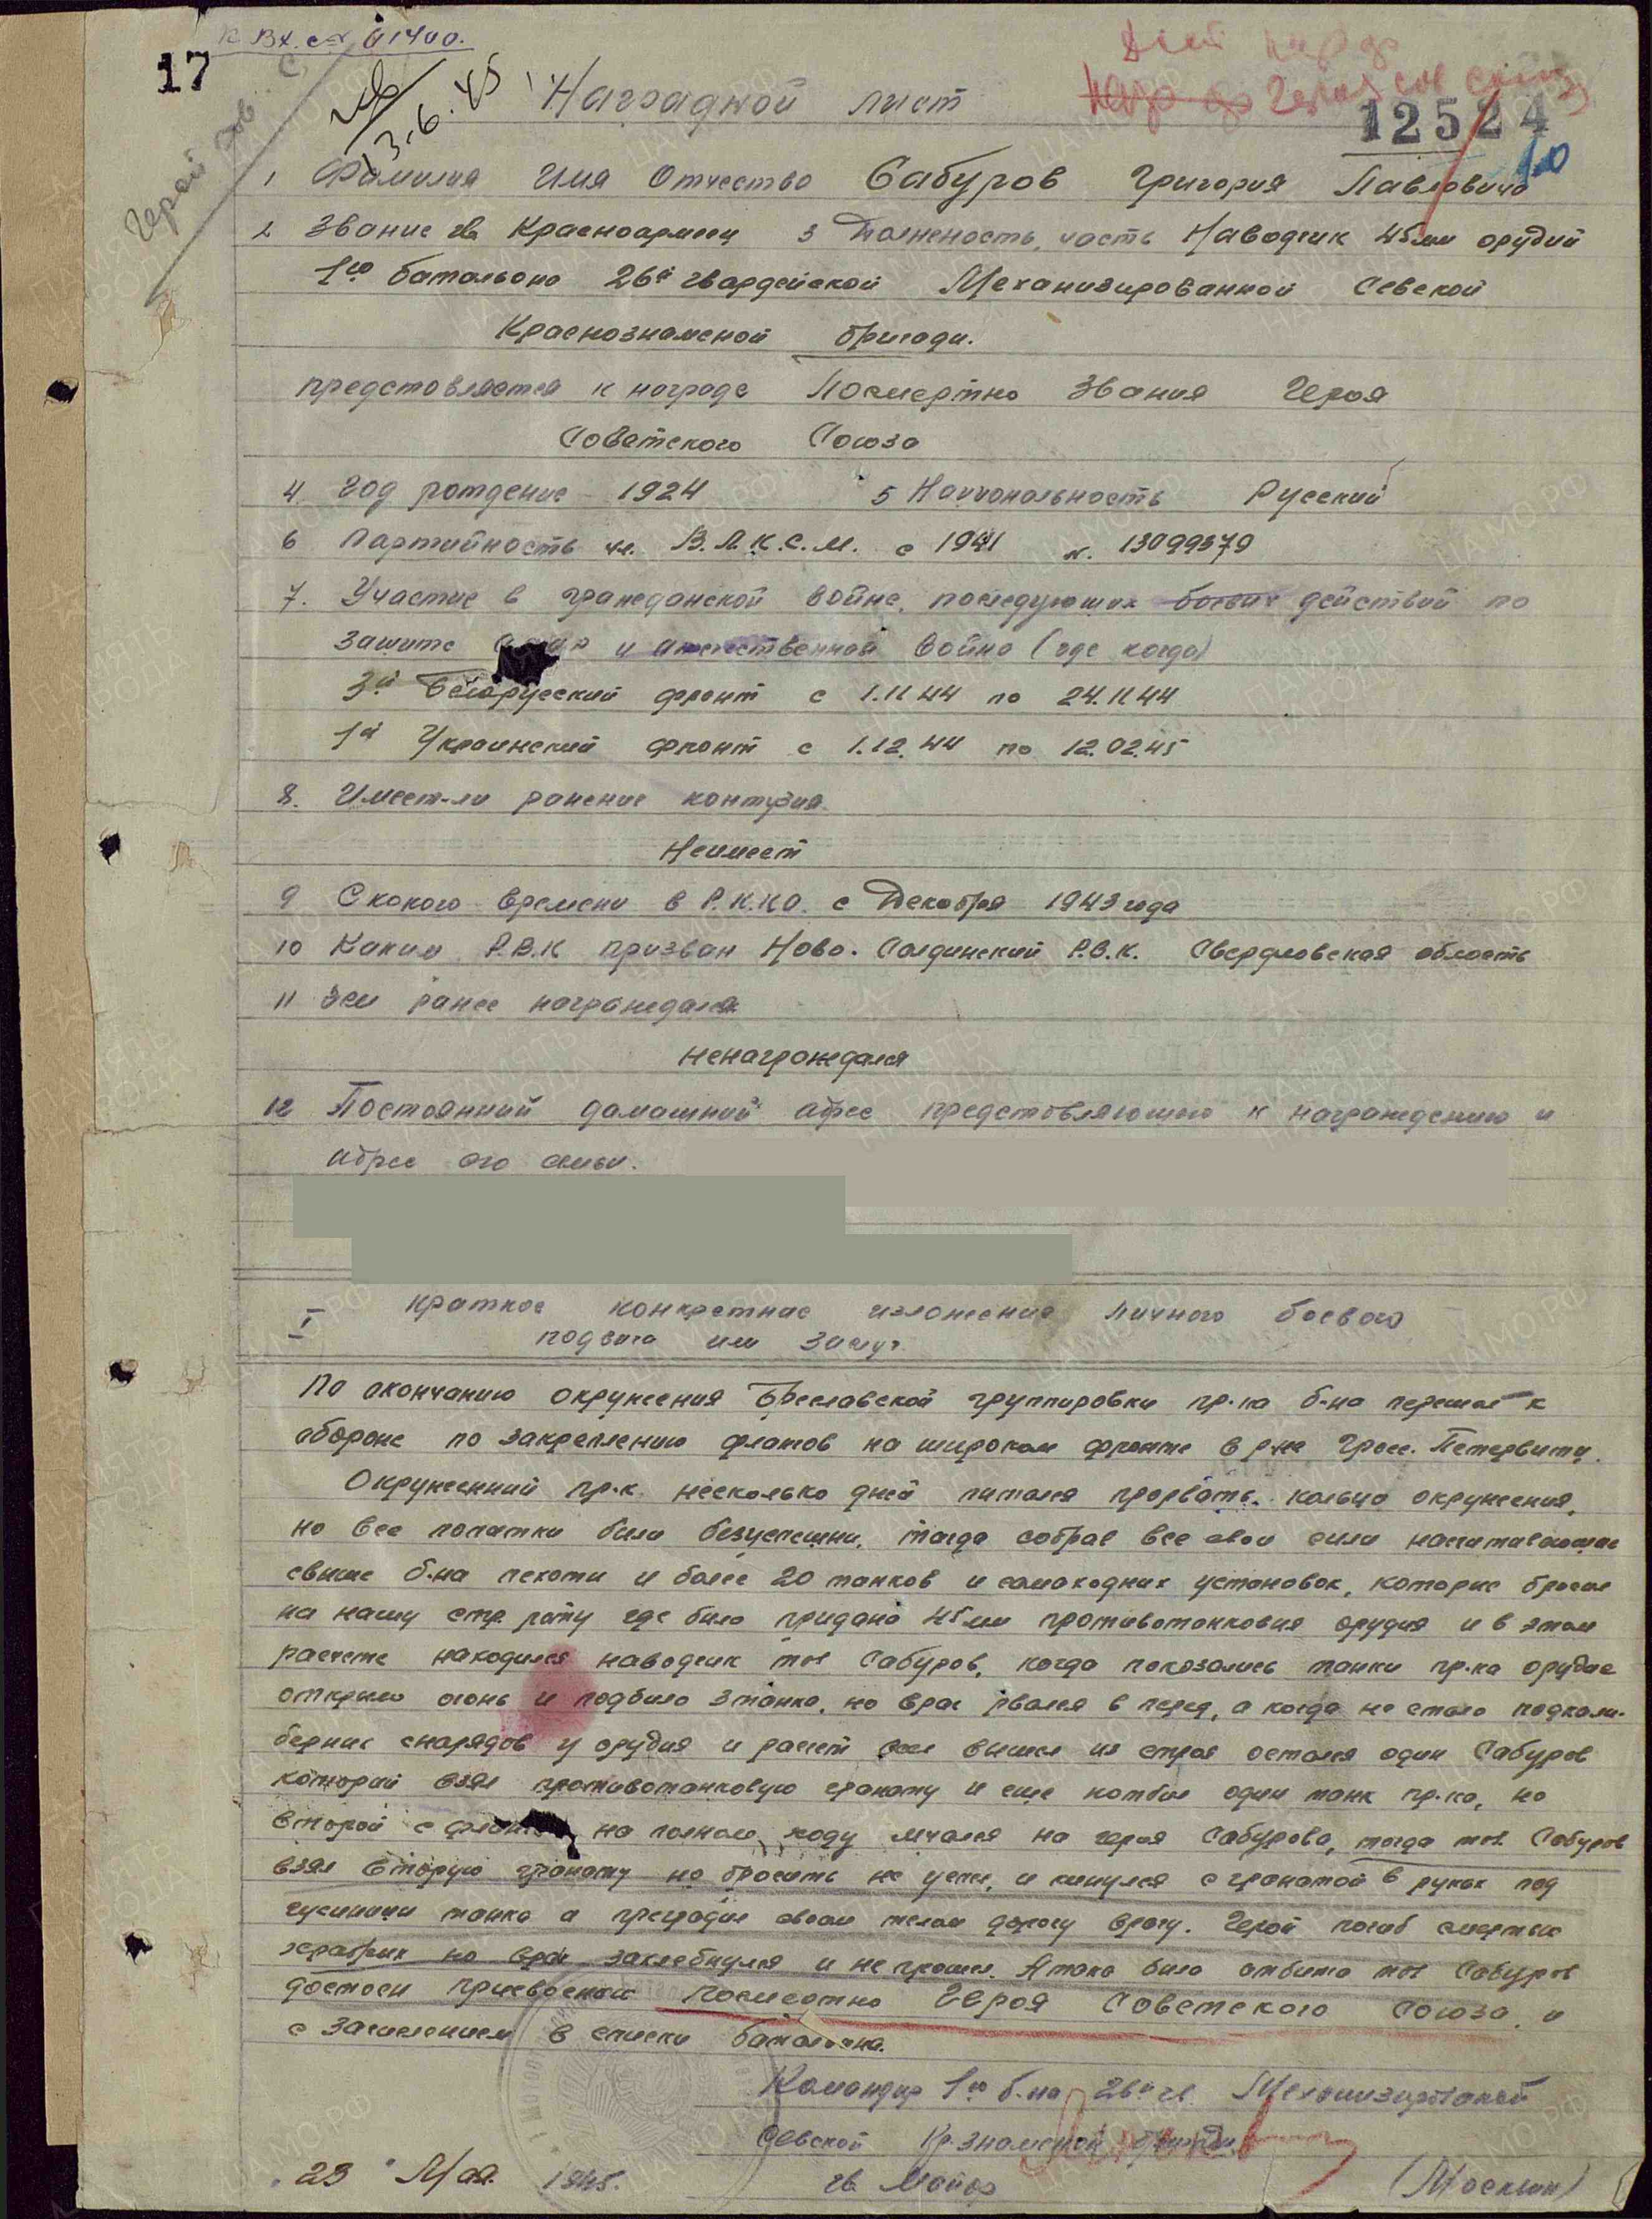 к Вх. с-т 01400.
17
13.6.45
Герой Сов. С
Наградной лист
12524
1 Фамилия Имя Отчество Сабуров Григория Павловича
2 Звание гв Красноармеец 3 Должность, часть Наводчик 45мм орудий
1го батальона 26й гвардейской Механизированной Севской
Краснознаменой бригади.
представляется к награде Посмертно Звания Героя
Советского Союза
4. Год рождение - 1924 5 Национальность Русский
6 Партийность чл. В.Л.К.С.М. с 1941 н. 13099379
7. Участие в гражданской войне, последующих боевих действий по
защите и отечественной войно (где когда)
3й Белорусский фронт с 1.11 44 по 24.11 44
1й Украинский фронт с 1.12.44 по 12.02.45
8. Имеет-ли ранение контузия
Неимеет
9 Скокого времени в Р.К.К.А. с Декабря 1943 года
10 Каким Р.В.К призван Ново-Салдинский Р.В.К. Свердловская область
11 Зем ранее награждался
ненаграждался
12 Постоянний домашний адрес представляющего к награждению и
адрес его семьи.
I краткое конкретние изложение личного боевого
подвига или заслуг.
По окончанию окружения Бреславской группировки пр-ка б-но перешол к
обороне по закреплению флангов на широком фронте в р-не Грос. Петервитц.
Окруженний пр-к несколько дней питался прорвать кольцо окружения,
но все попитки били безуспешни, тогда собрав все свои сили насчитивающие
свыше б-на пехоти и более 20 танков и самоходних установок, которие бросил
на нашу стр. роту где било придано 45мм противотанковия орудия и в этом
расчете находился наводчик тов Сабуров, когда показались танки пр-ка орудие
открыло огонь и подбило 3 танка, но враг рвался в перед, а когда не стало подкали-
берних снарядов у орудия и расчет все вышел из строя остался один Сабуров
которий взял противотанковую гранату и еще подбил один танк пр-ка, но
второй с фланга на полном ходу мчался на героя Сабурова, тогда тов Сабуров
взял вторую гранату но бросить не успел, и кинулся с гранатой в руках под
гусиници танка и преградил своим телом дорогу врагу. Герой погиб смертью
храбрих но враг захлебнулся и не прошел. Атака била отбита тов Сабуров
достоен присвоении посмертно Героя Советского Союза, и
с зачислением в списки батальона.
Командир 1го б-на 26й гв. Механизированой
Севской Кр.знаменой бригади
гв Майор (Москвин)
23 Мая 1945.